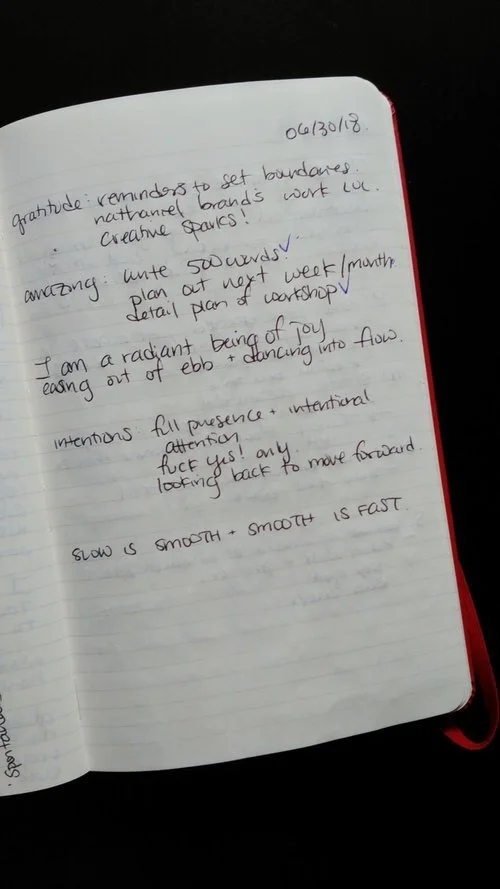 06/30/18.
gratitude: reminders to set boundaries.
nathaniel brand's work
creative sparks!
amazing: write 500 words ✓
plan out next week/month
detail plan of workshop ✓
I am a radiant being of joy
easing out of ebb + dancing into flow.
intentions: full presence + intentional
attention
fuck yes! only.
looking back to move forward.
SLOW IS SMOOTH + SMOOTH IS FAST.